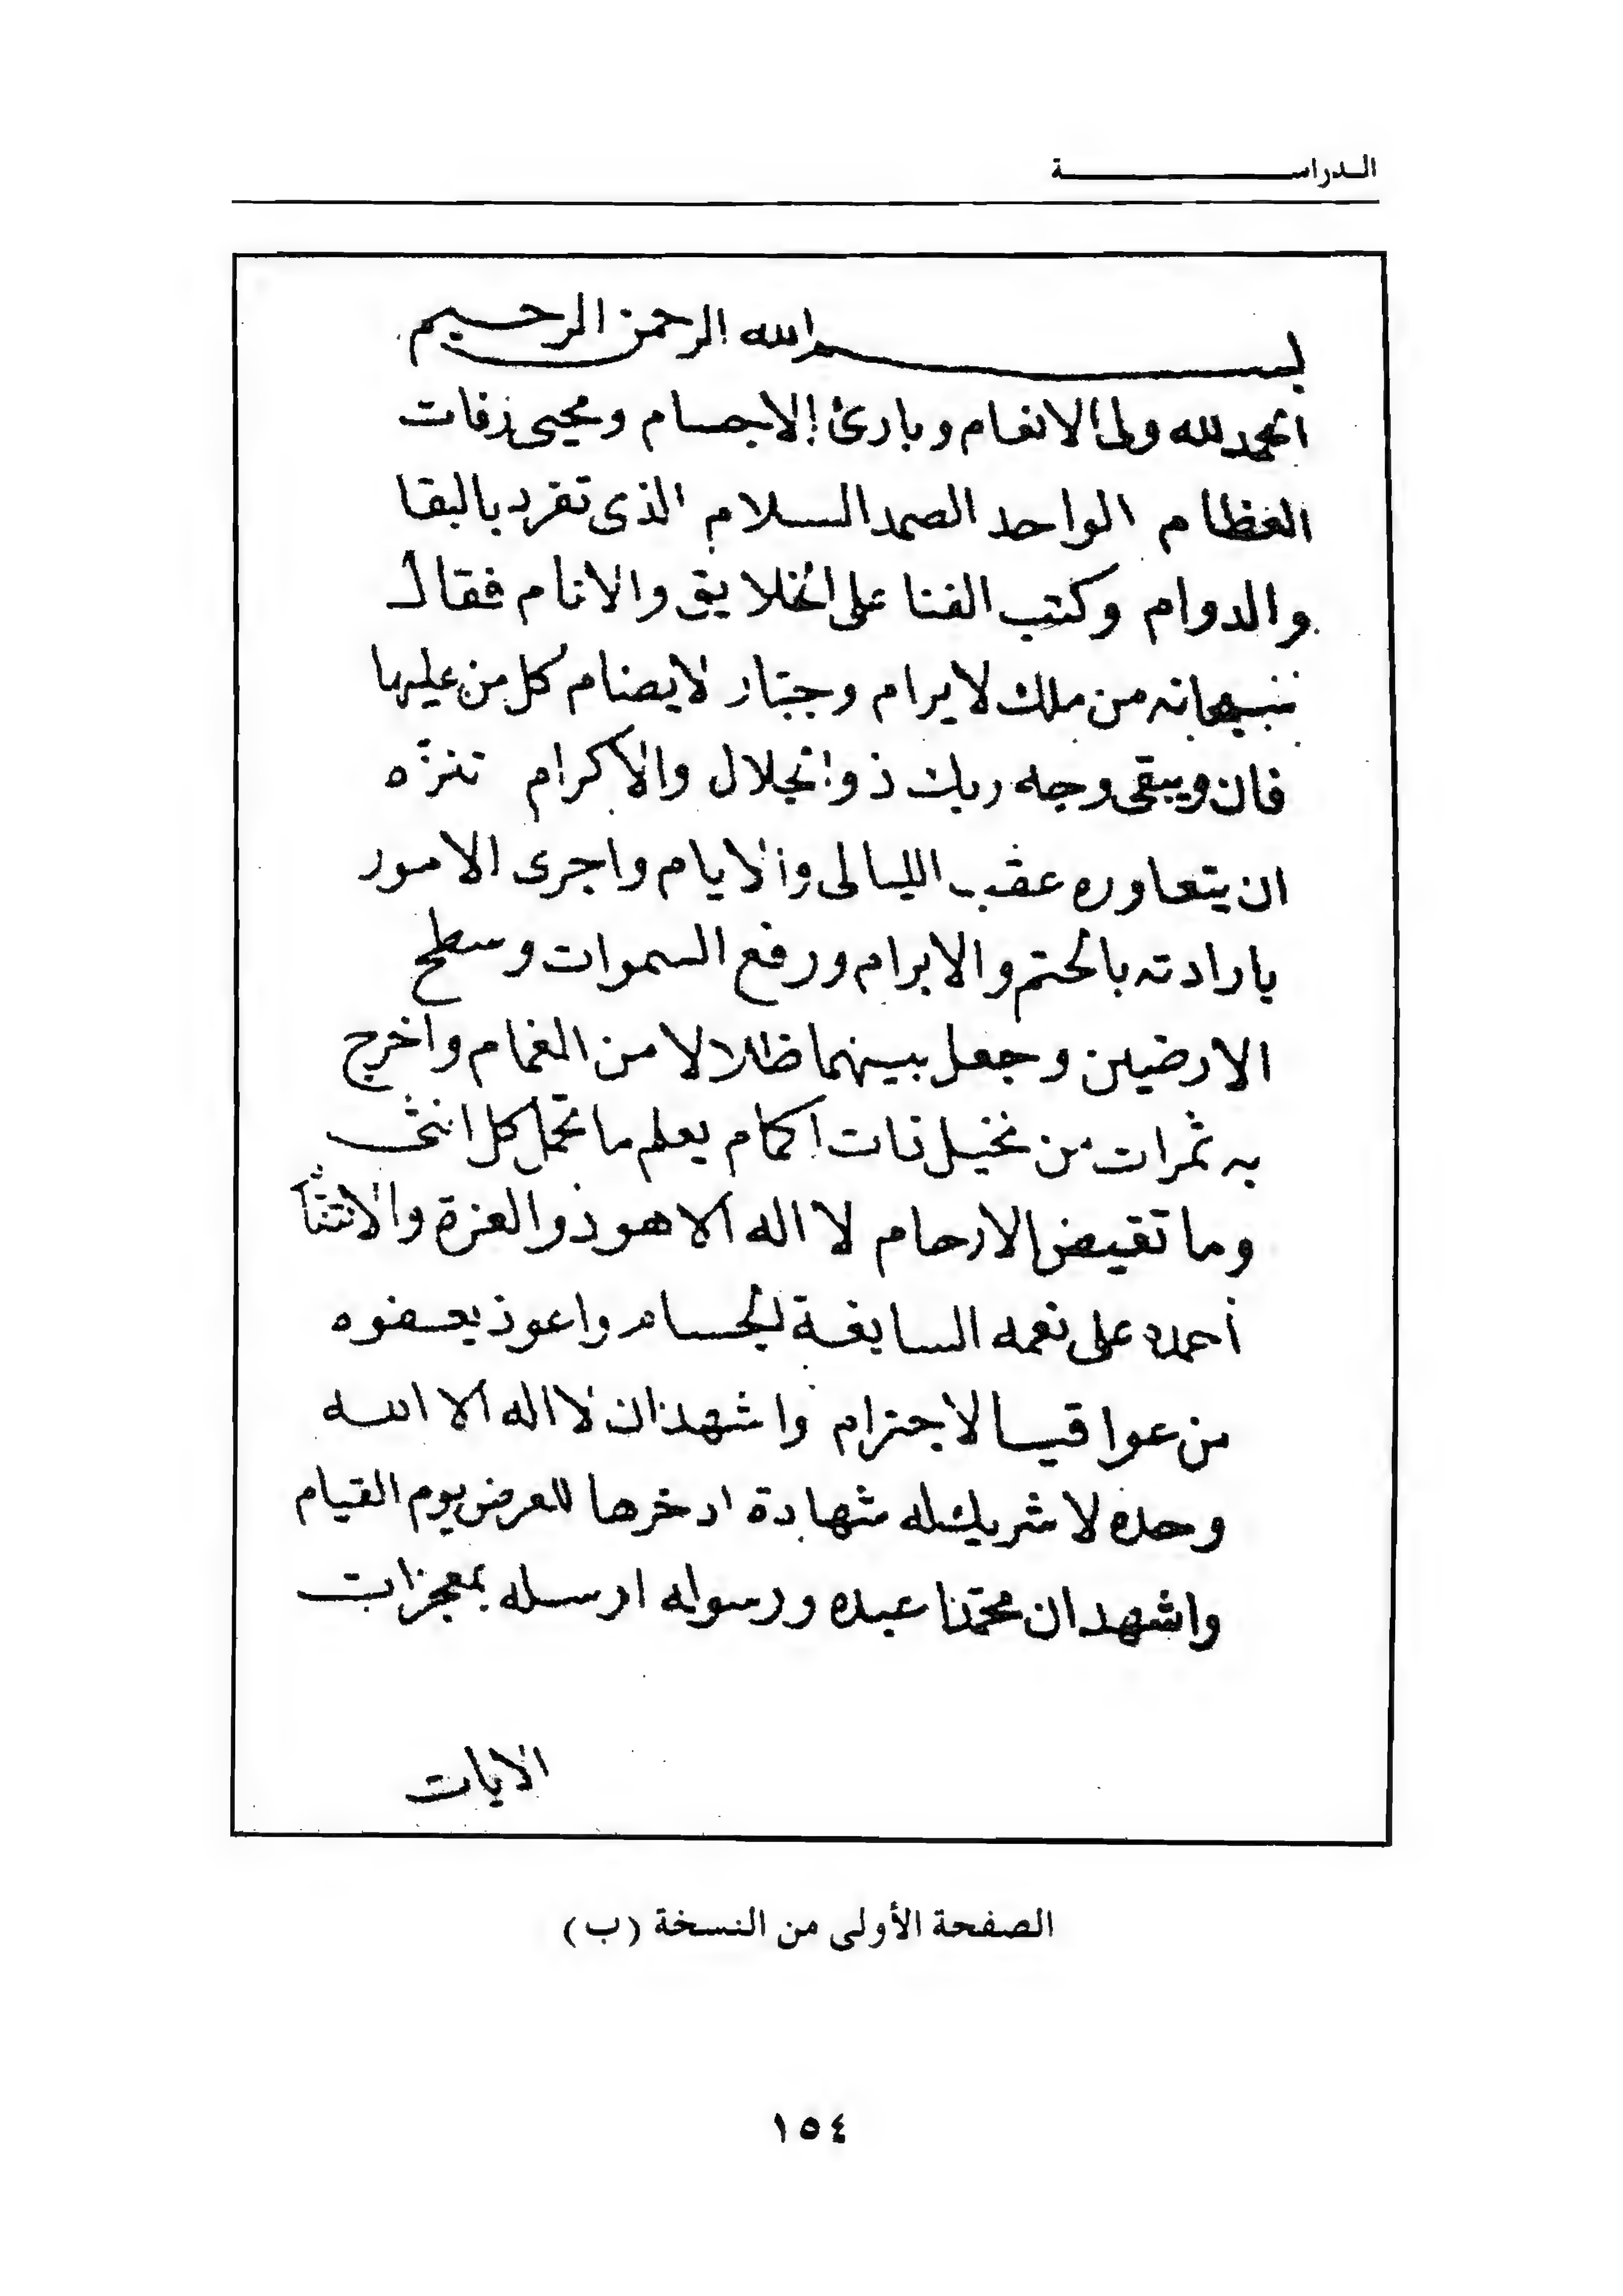 الدراسة
بسم الله الرحمن الرحيم
الحمد لله ولى الانعام وبارئ الاجسام ومحيى رفات
العظام الواحد الصمد السلام الذى تفرد بالبقا
والدوام وكتب الفنا على الخلايق والانام فقال
سبحانه من ملك لا يرام وجبار لا يضام كل من عليها
فان ويبقى وجه ربك ذو الجلال والاكرام تنزه
ان يتعاوره عقب الليالى والايام واجرى الامور
بارادته بالحتم والابرام ورفع السموات وسطح
الارضين وجعل بينهما ظلالا من الغمام واخرج
به ثمرات من نخيل ذات اكمام يعلم ما تحمل كل انثى
وما تغيض الارحام لا اله الا هو ذو العزة
أحمده على نعمه السابغة الجسام واعوذ بعفوه
من عواقب الاجترام واشهد ان لا اله الا الله
وحده لا شريك له شهادة ادخرها للعرض يوم القيام
واشهد ان محمدا عبده ورسوله ارسله بمعجزات
الايات
الصفحة الأولى من النسخة (ب)
١٥٤